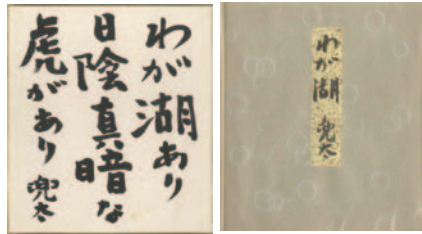 わが湖あり
日陰真暗な
虎があり 兜太
わが湖 兜太